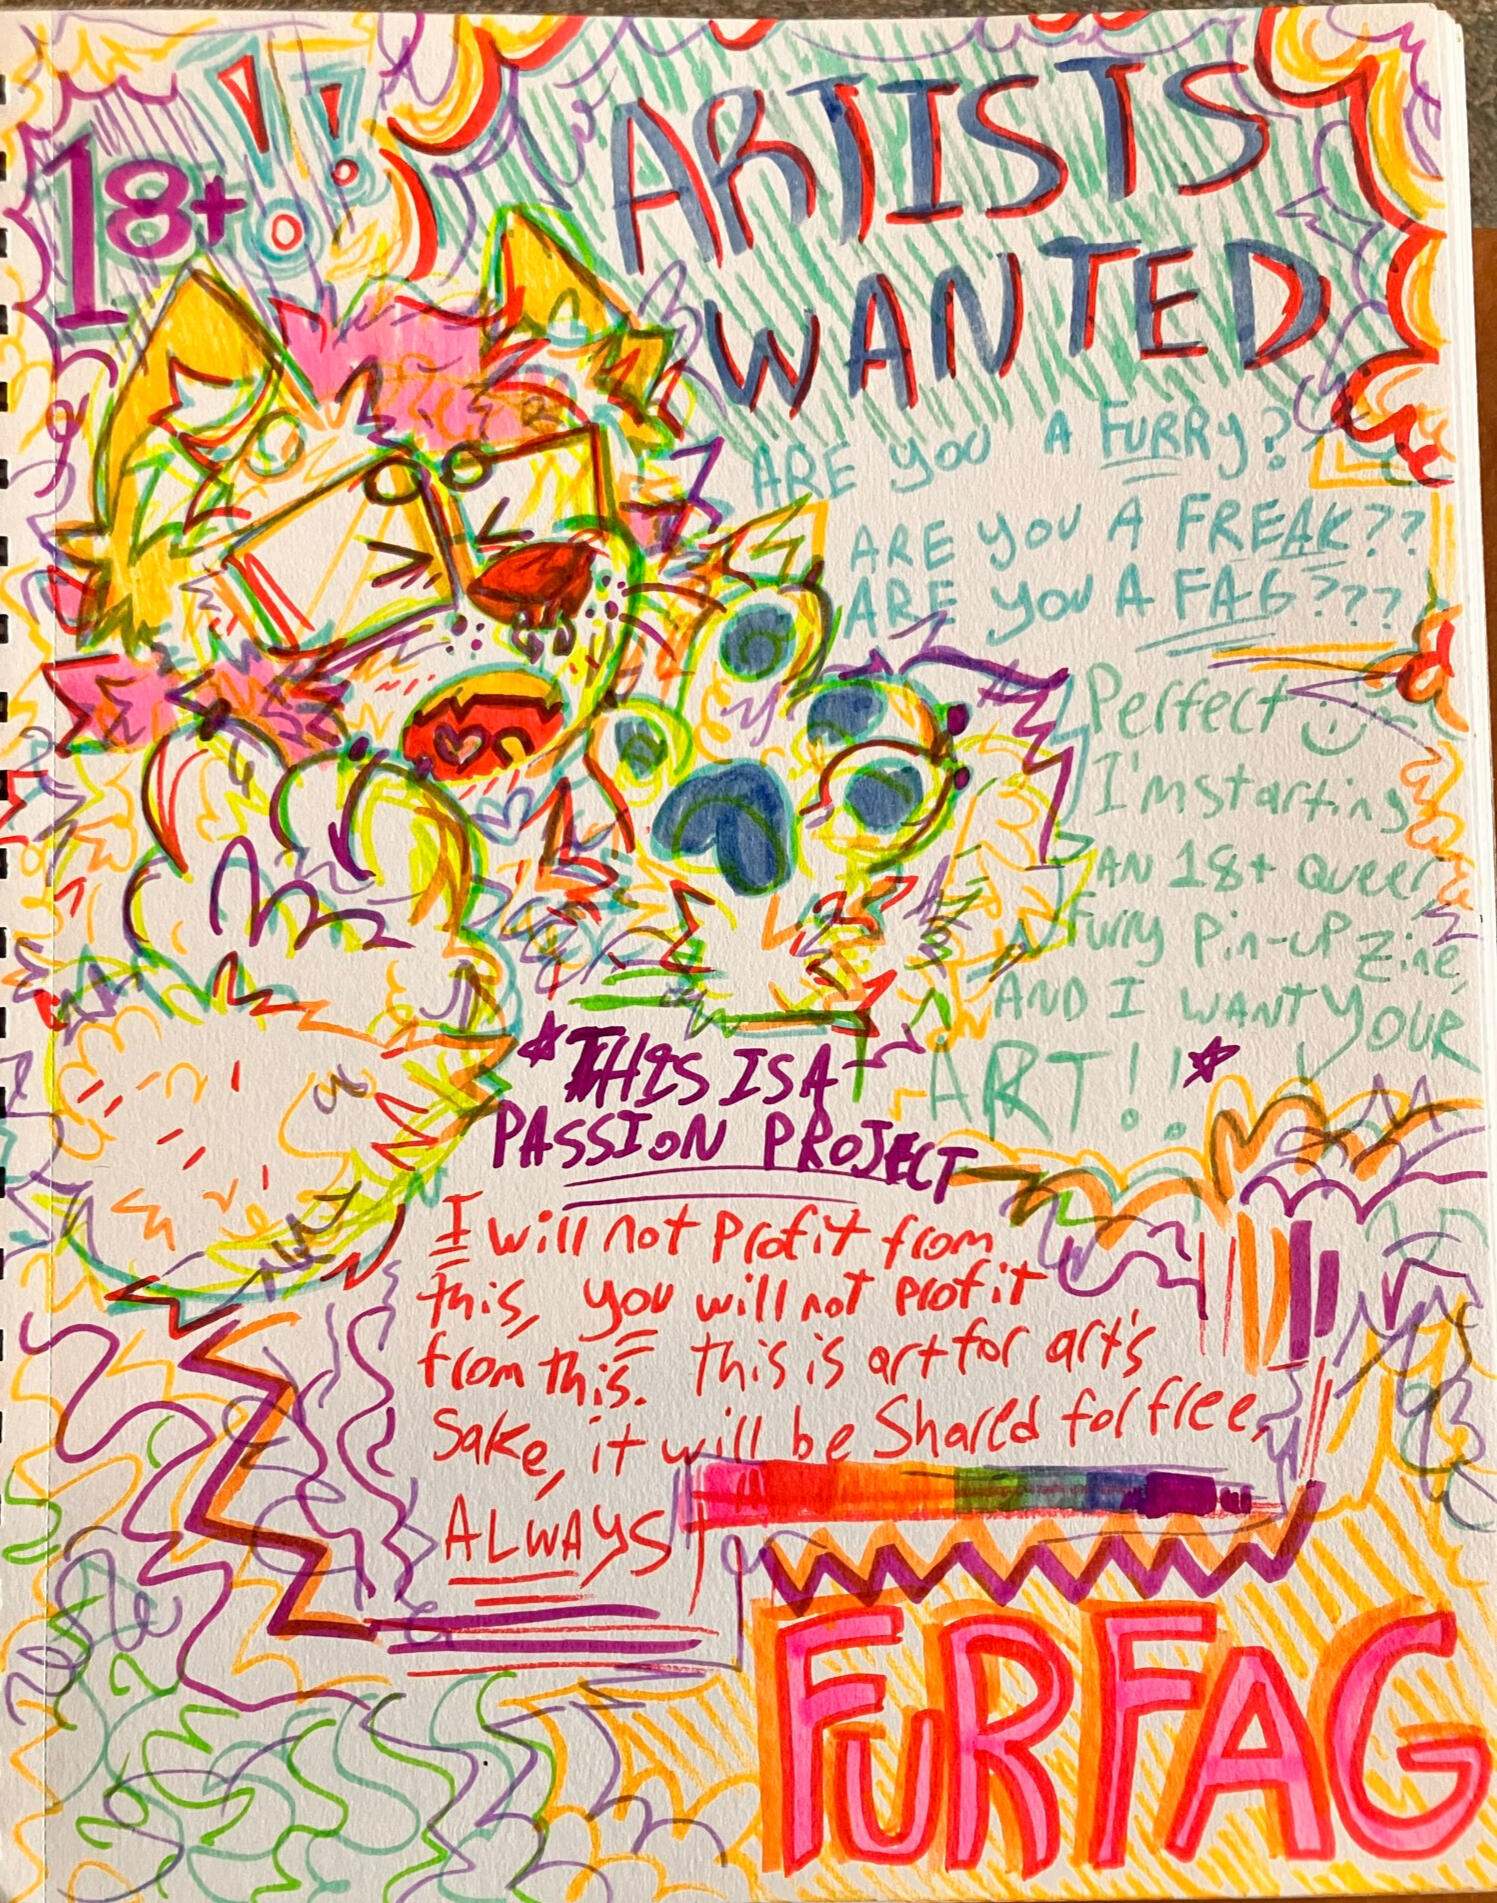 18+!!
ARTISTS
WANTED
ARE YOU A FURRY?
ARE YOU A FREAK??
ARE YOU A FAG???
Perfect :)
I'm starting
AN 18+ queer
Furry Pin-up zine,
AND I WANT YOUR
ART!!
*THIS IS A*
PASSION PROJECT
I will not profit from
this, you will not profit
from this. This is art for art's
sake, it will be shared for free,
ALWAYS
FURFAG